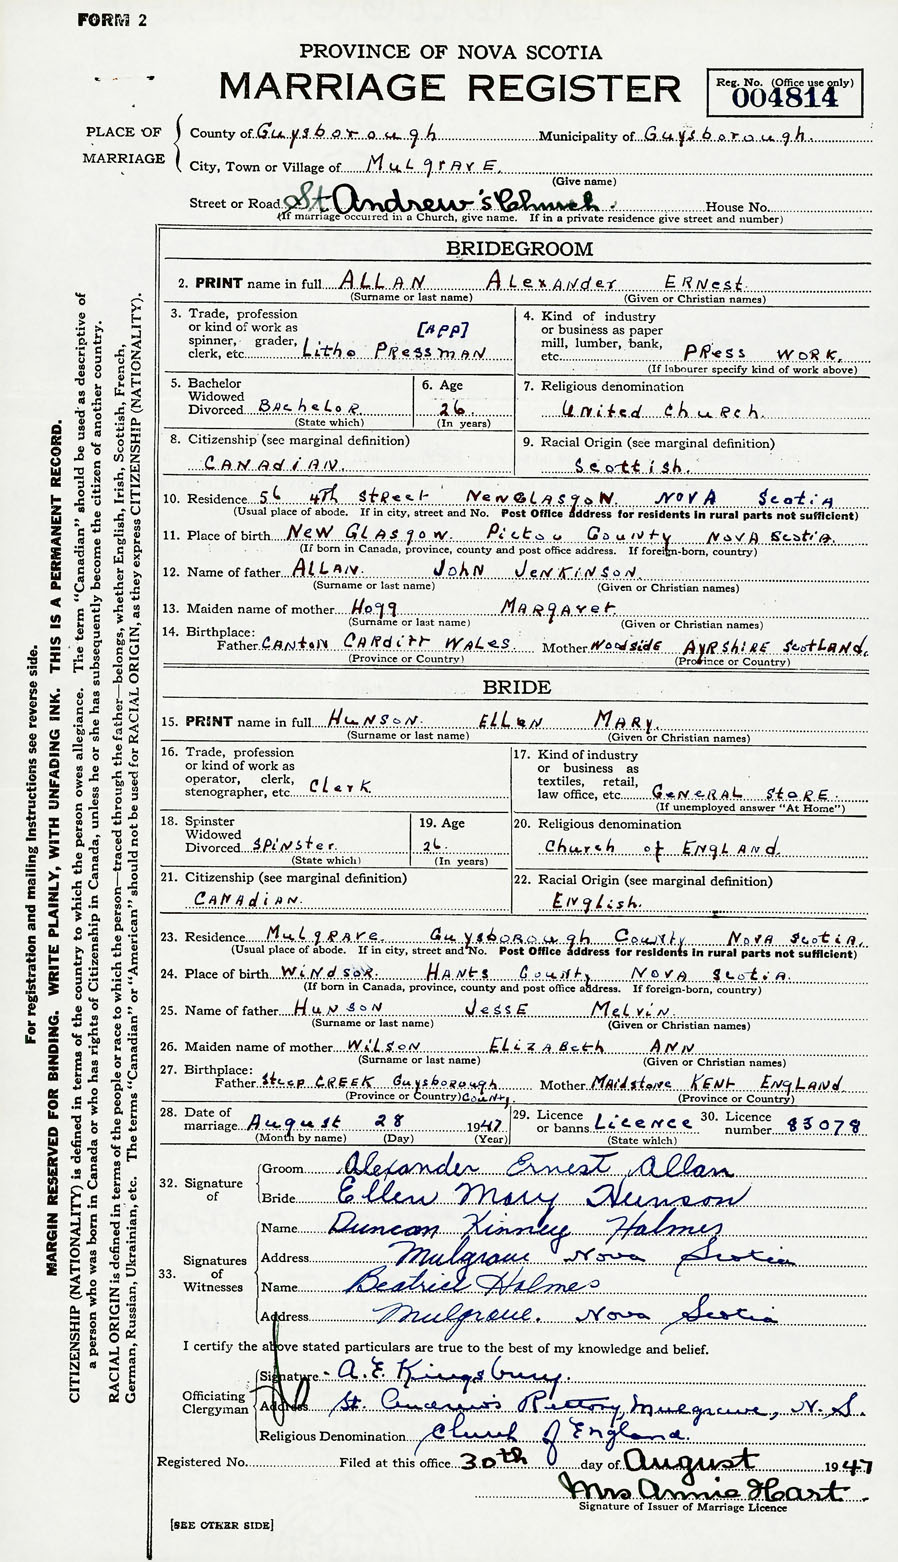 FORM 2
PROVINCE OF NOVA SCOTIA
MARRIAGE REGISTER
Reg. No. (Office use only)
004814
PLACE OF MARRIAGE
County of Guysborough Municipality of Guysborough.
City, Town or Village of MulgrAvE.
(Give name)
Street or Road St Andrew's Church. House No.
(If marriage occurred in a Church, give name. If in a private residence give street and number)
BRIDEGROOM
2. PRINT name in full ALLAN AlexANder ERNest.
(Surname or last name) (Given or Christian names)
3. Trade, profession or kind of work as spinner, grader, clerk, etc. Litho PRESSMAN [APP]
4. Kind of industry or business as paper mill, lumber, bank, etc. PRess WORK.
(If labourer specify kind of work above)
5. Bachelor Widowed Divorced BAchelOR
(State which)
6. Age 26
(In years)
7. Religious denomination United Church.
8. Citizenship (see marginal definition) CANAdiAN.
9. Racial Origin (see marginal definition) Scottish.
10. Residence 56 4th Street NewGlasgow. NOVA ScotiA
(Usual place of abode. If in city, street and No. Post Office address for residents in rural parts not sufficient)
11. Place of birth NEW GLASgow. Pictou County NOVA Scotia.
(If born in Canada, province, county and post office address. If foreign-born, country)
12. Name of father ALLAN. JohN JENKINSON.
(Surname or last name) (Given or Christian names)
13. Maiden name of mother Hogg MARgaret.
(Surname or last name) (Given or Christian names)
14. Birthplace: Father CANton CARdiff WALES. Mother WoodSIDE AYRSHIRE ScotLAND.
(Province or Country) (Province or Country)
BRIDE
15. PRINT name in full HUNSON. ELLEN MARY.
(Surname or last name) (Given or Christian names)
16. Trade, profession or kind of work as operator, clerk, stenographer, etc. Clerk
17. Kind of industry or business as textiles, retail, law office, etc. GeNERAL StORE.
(If unemployed answer "At Home")
18. Spinster Widowed Divorced SPiNster.
(State which)
19. Age 26.
(In years)
20. Religious denomination Church of ENGLAND.
21. Citizenship (see marginal definition) CANAdian.
22. Racial Origin (see marginal definition) English.
23. Residence Mulgrave. Guysborough County Nova Scotia.
(Usual place of abode. If in city, street and No. Post Office address for residents in rural parts not sufficient)
24. Place of birth WiNdSOR. HANts County NOVA Scotia.
(If born in Canada, province, county and post office address. If foreign-born, country)
25. Name of father HUNSON JESSE MelviN.
(Surname or last name) (Given or Christian names)
26. Maiden name of mother WilSON ELIZABeth ANN
(Surname or last name) (Given or Christian names)
27. Birthplace: Father Steep CREEK Guysborough County. Mother MAidstone KENT ENGLAND
(Province or Country) (Province or Country)
28. Date of marriage August 28 1947
(Month by name) (Day) (Year)
29. Licence or banns Licence
(State which)
30. Licence number 83078
32. Signature of
Groom Alexander Ernest Allan
Bride Ellen Mary Hunson
33. Signatures of Witnesses
Name Duncan Kinney Holmes
Address Mulgrave Nova Scotia
Name Beatrice Holmes
Address Mulgrave. Nova Scotia
I certify the above stated particulars are true to the best of my knowledge and belief.
Officiating Clergyman
Signature A.E. Kingsbury.
Address St. Andrew's Rectory, Mulgrave, N.S.
Religious Denomination Church of England.
Registered No. Filed at this office 30th day of August 1947
Mrs Annie Hart.
Signature of Issuer of Marriage Licence
[SEE OTHER SIDE]
For registration and mailing instructions see reverse side.
MARGIN RESERVED FOR BINDING. WRITE PLAINLY, WITH UNFADING INK. THIS IS A PERMANENT RECORD.
CITIZENSHIP (NATIONALITY) is defined in terms of the country to which the person owes allegiance. The term "Canadian" should be used as descriptive of
a person who was born in Canada or who has rights of Citizenship in Canada, unless he or she has subsequently become the citizen of another country.
RACIAL ORIGIN is defined in terms of the people or race to which the person—traced through the father—belongs, whether English, Irish, Scottish, French,
German, Russian, Ukrainian, etc. The terms "Canadian" or "American" should not be used for RACIAL ORIGIN, as they express CITIZENSHIP (NATIONALITY).